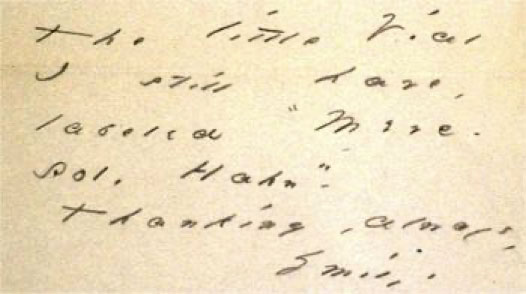 The little Vial
I still have,
labeled "Merc.
Sol. Hahn".
Thanking, always,
Emily.